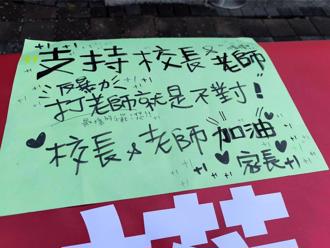 支持校長&老師
反暴力
打老師就是不對！
校長&老師加油
家長